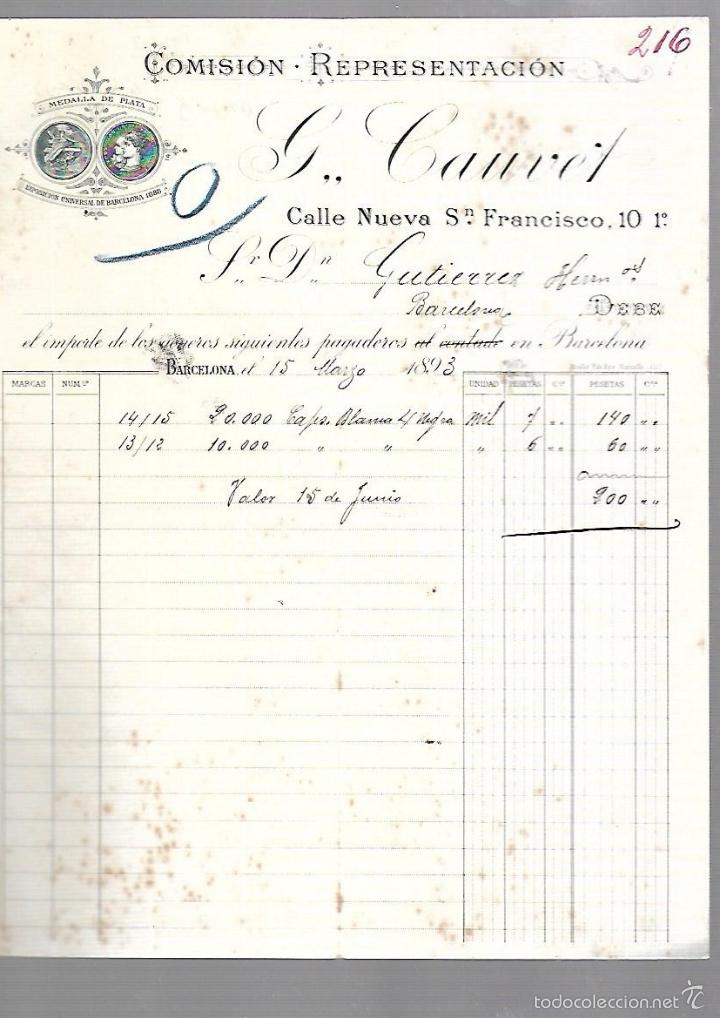 216
COMISIÓN · REPRESENTACIÓN
MEDALLA DE PLATA
EXPOSICIÓN UNIVERSAL DE BARCELONA 1888
G. Cauvét
Calle Nueva Sn. Francisco, 10 1º
Sr. Dn. Gutierrez Herm os.
Barcelona DEBE
el importe de los géneros siguientes pagaderos al contado en Barcelona
BARCELONA, el 15 Marzo 1893
MARCAS NUM.os UNIDAD PESETAS C.ms PESETAS C.ms
14/15 20.000 Caps. Blanca y Negra mil 7 " " 140 " "
13/12 10.000 " " " 6 " " 60 " "
Valor 15 de Junio 200 " "
todocoleccion.net